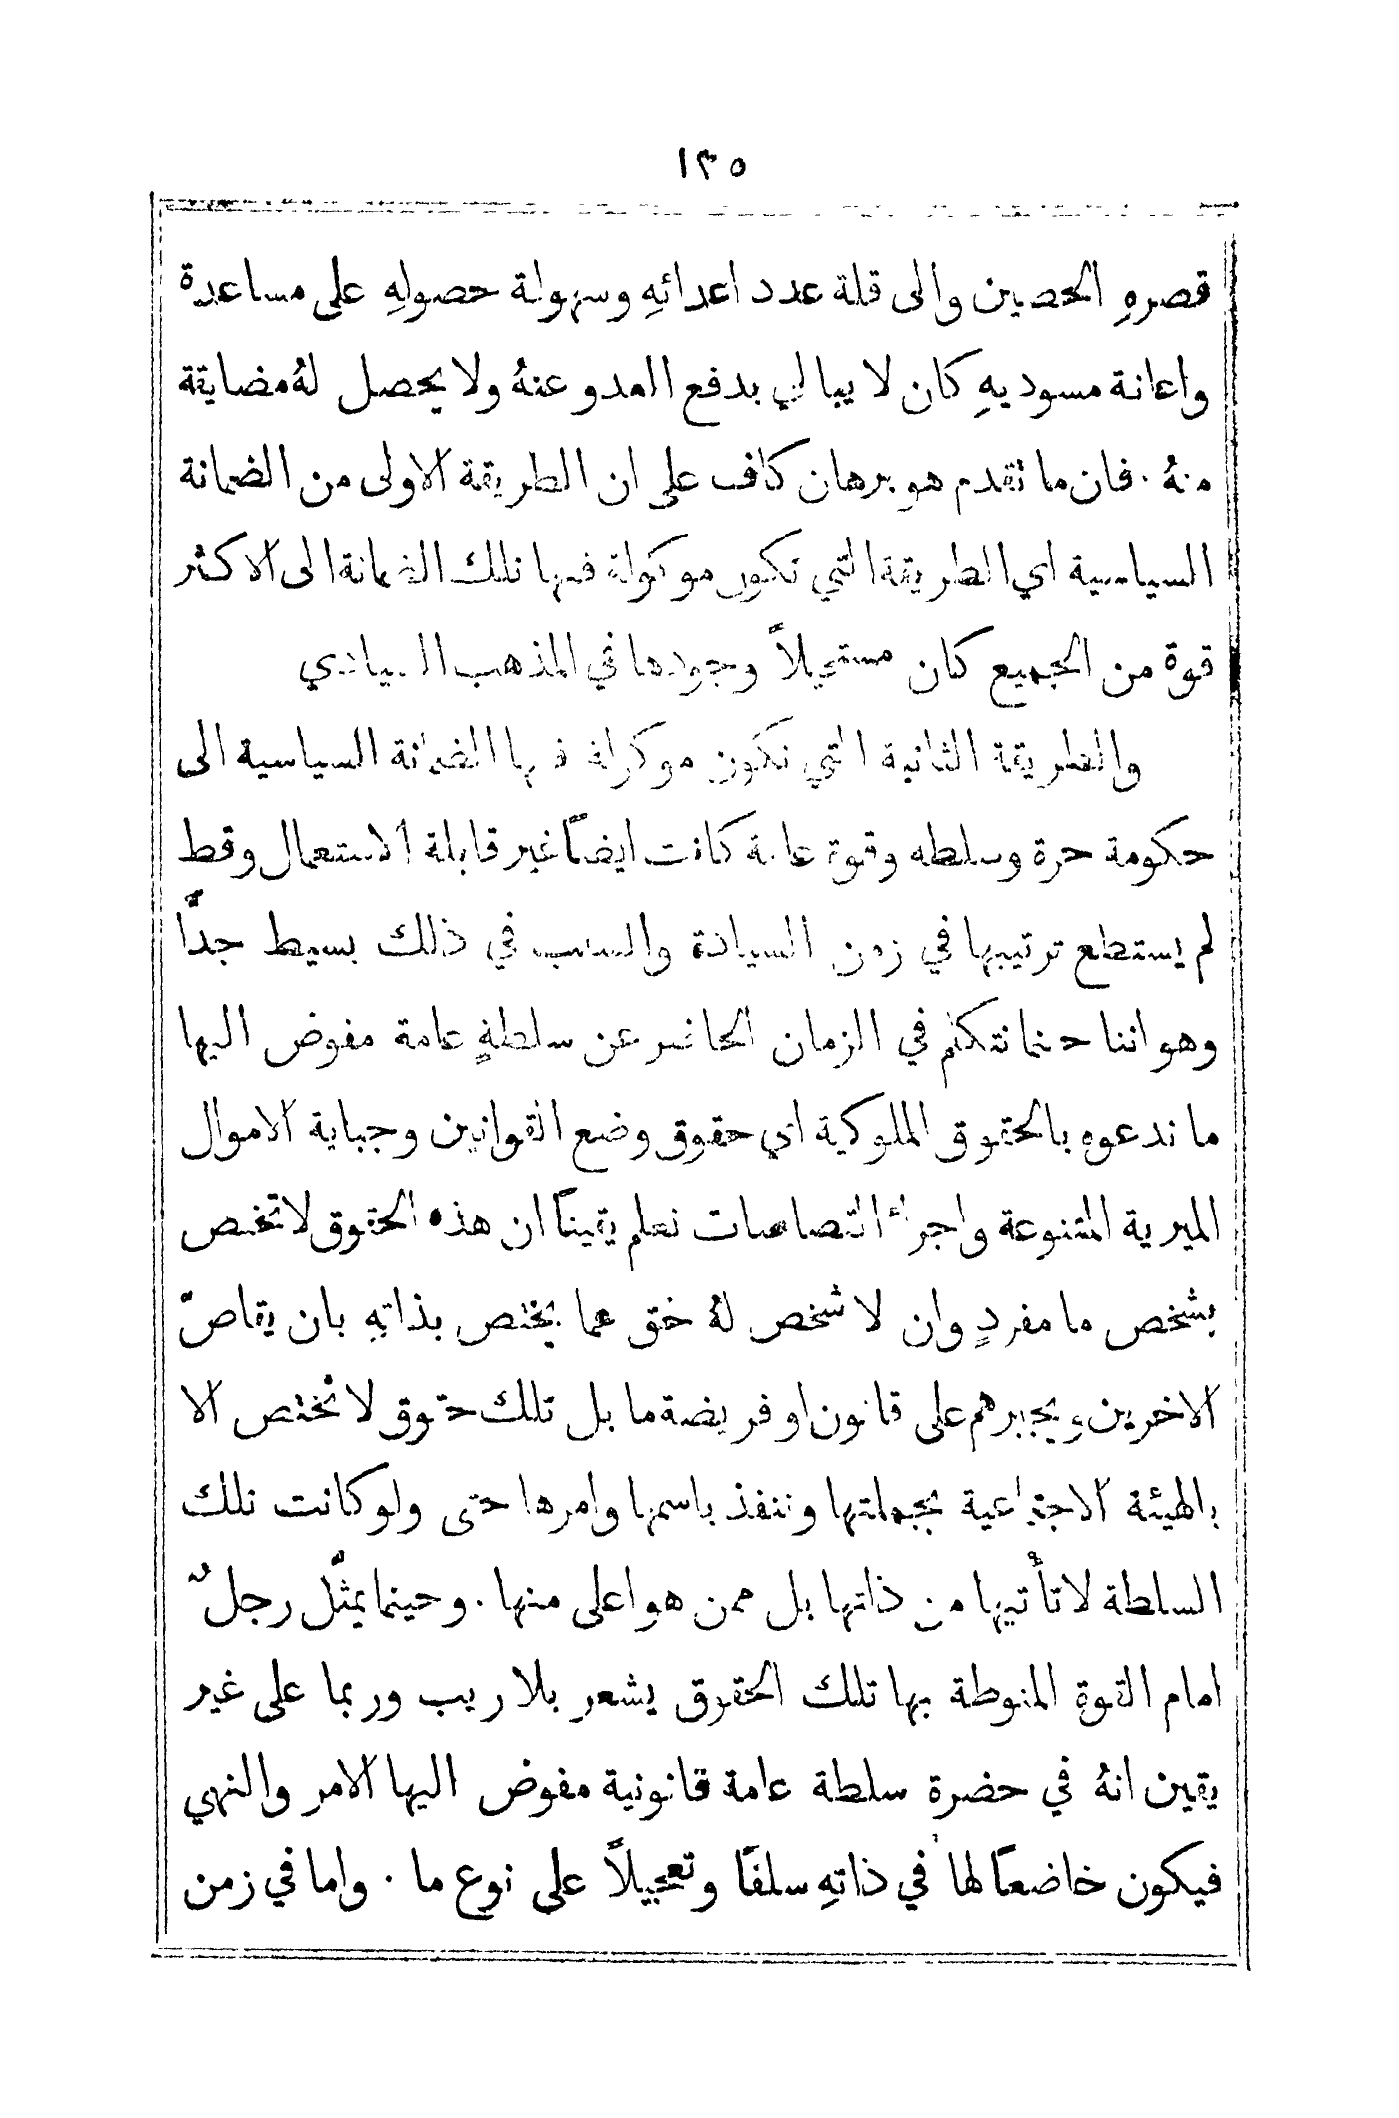 ١٣٥
قصرهِ الحصين والى قلة عدد اعدائهِ وسهولة حصولهِ على مساعدة
واعانة مسوديهِ كان لا يبالي بدفع العدو عنهُ ولا يحصل لهُ مضايقة
منهُ . فان ما تقدم هو برهان كاف على ان الطريقة الاولى من الضمانة
السياسية اي الطريقة التي تكون موكولة فيها تلك الضمانة الى الاكثر
قوة من الجميع كان مستحيلاً وجودها في المذهب السيادي
والطريقة الثانية التي تكون موكولة فيها الضمانة السياسية الى
حكومة حرة وسلطه وقوة عامة كانت ايضاً غير قابلة الاستعمال وقط
لم يستطع ترتيبها في زمن السيادة والسبب في ذلك بسيط جداً
وهو اننا حينما نتكلم في الزمان الحاضر عن سلطةٍ عامة مفوض اليها
ما ندعوه بالحقوق الملوكية اي حقوق وضع القوانين وجباية الاموال
الميرية المتنوعة واجراء القصاصات نعلم يقيناً ان هذه الحقوق لا تختص
بشخص ما مفردٍ وان لا شخص لهُ حق عما يختص بذاتهِ بان يقاصّ
الاخرين ويجبرهم على قانون او فريضة ما بل تلك حقوق لا تختص الا
بالهيئة الاجتماعية بجملتها وتنفذ باسمها وامرها حتى ولو كانت تلك
السلطة لا تأتيها من ذاتها بل ممن هو اعلى منها . وحينما يمثّل رجلٌ
امام القوة المنوطة بها تلك الحقوق يشعر بلا ريب وربما على غير
يقين انهُ في حضرة سلطة عامة قانونية مفوض اليها الامر والنهي
فيكون خاضعاً لها في ذاتهِ سلفاً وتعجيلاً على نوع ما . واما في زمن